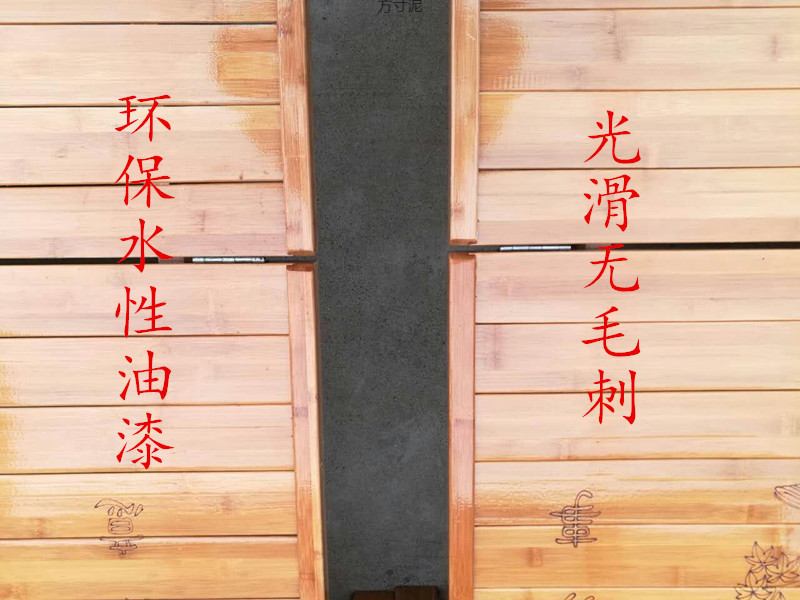 方寸泥
环保水性油漆
光滑无毛刺